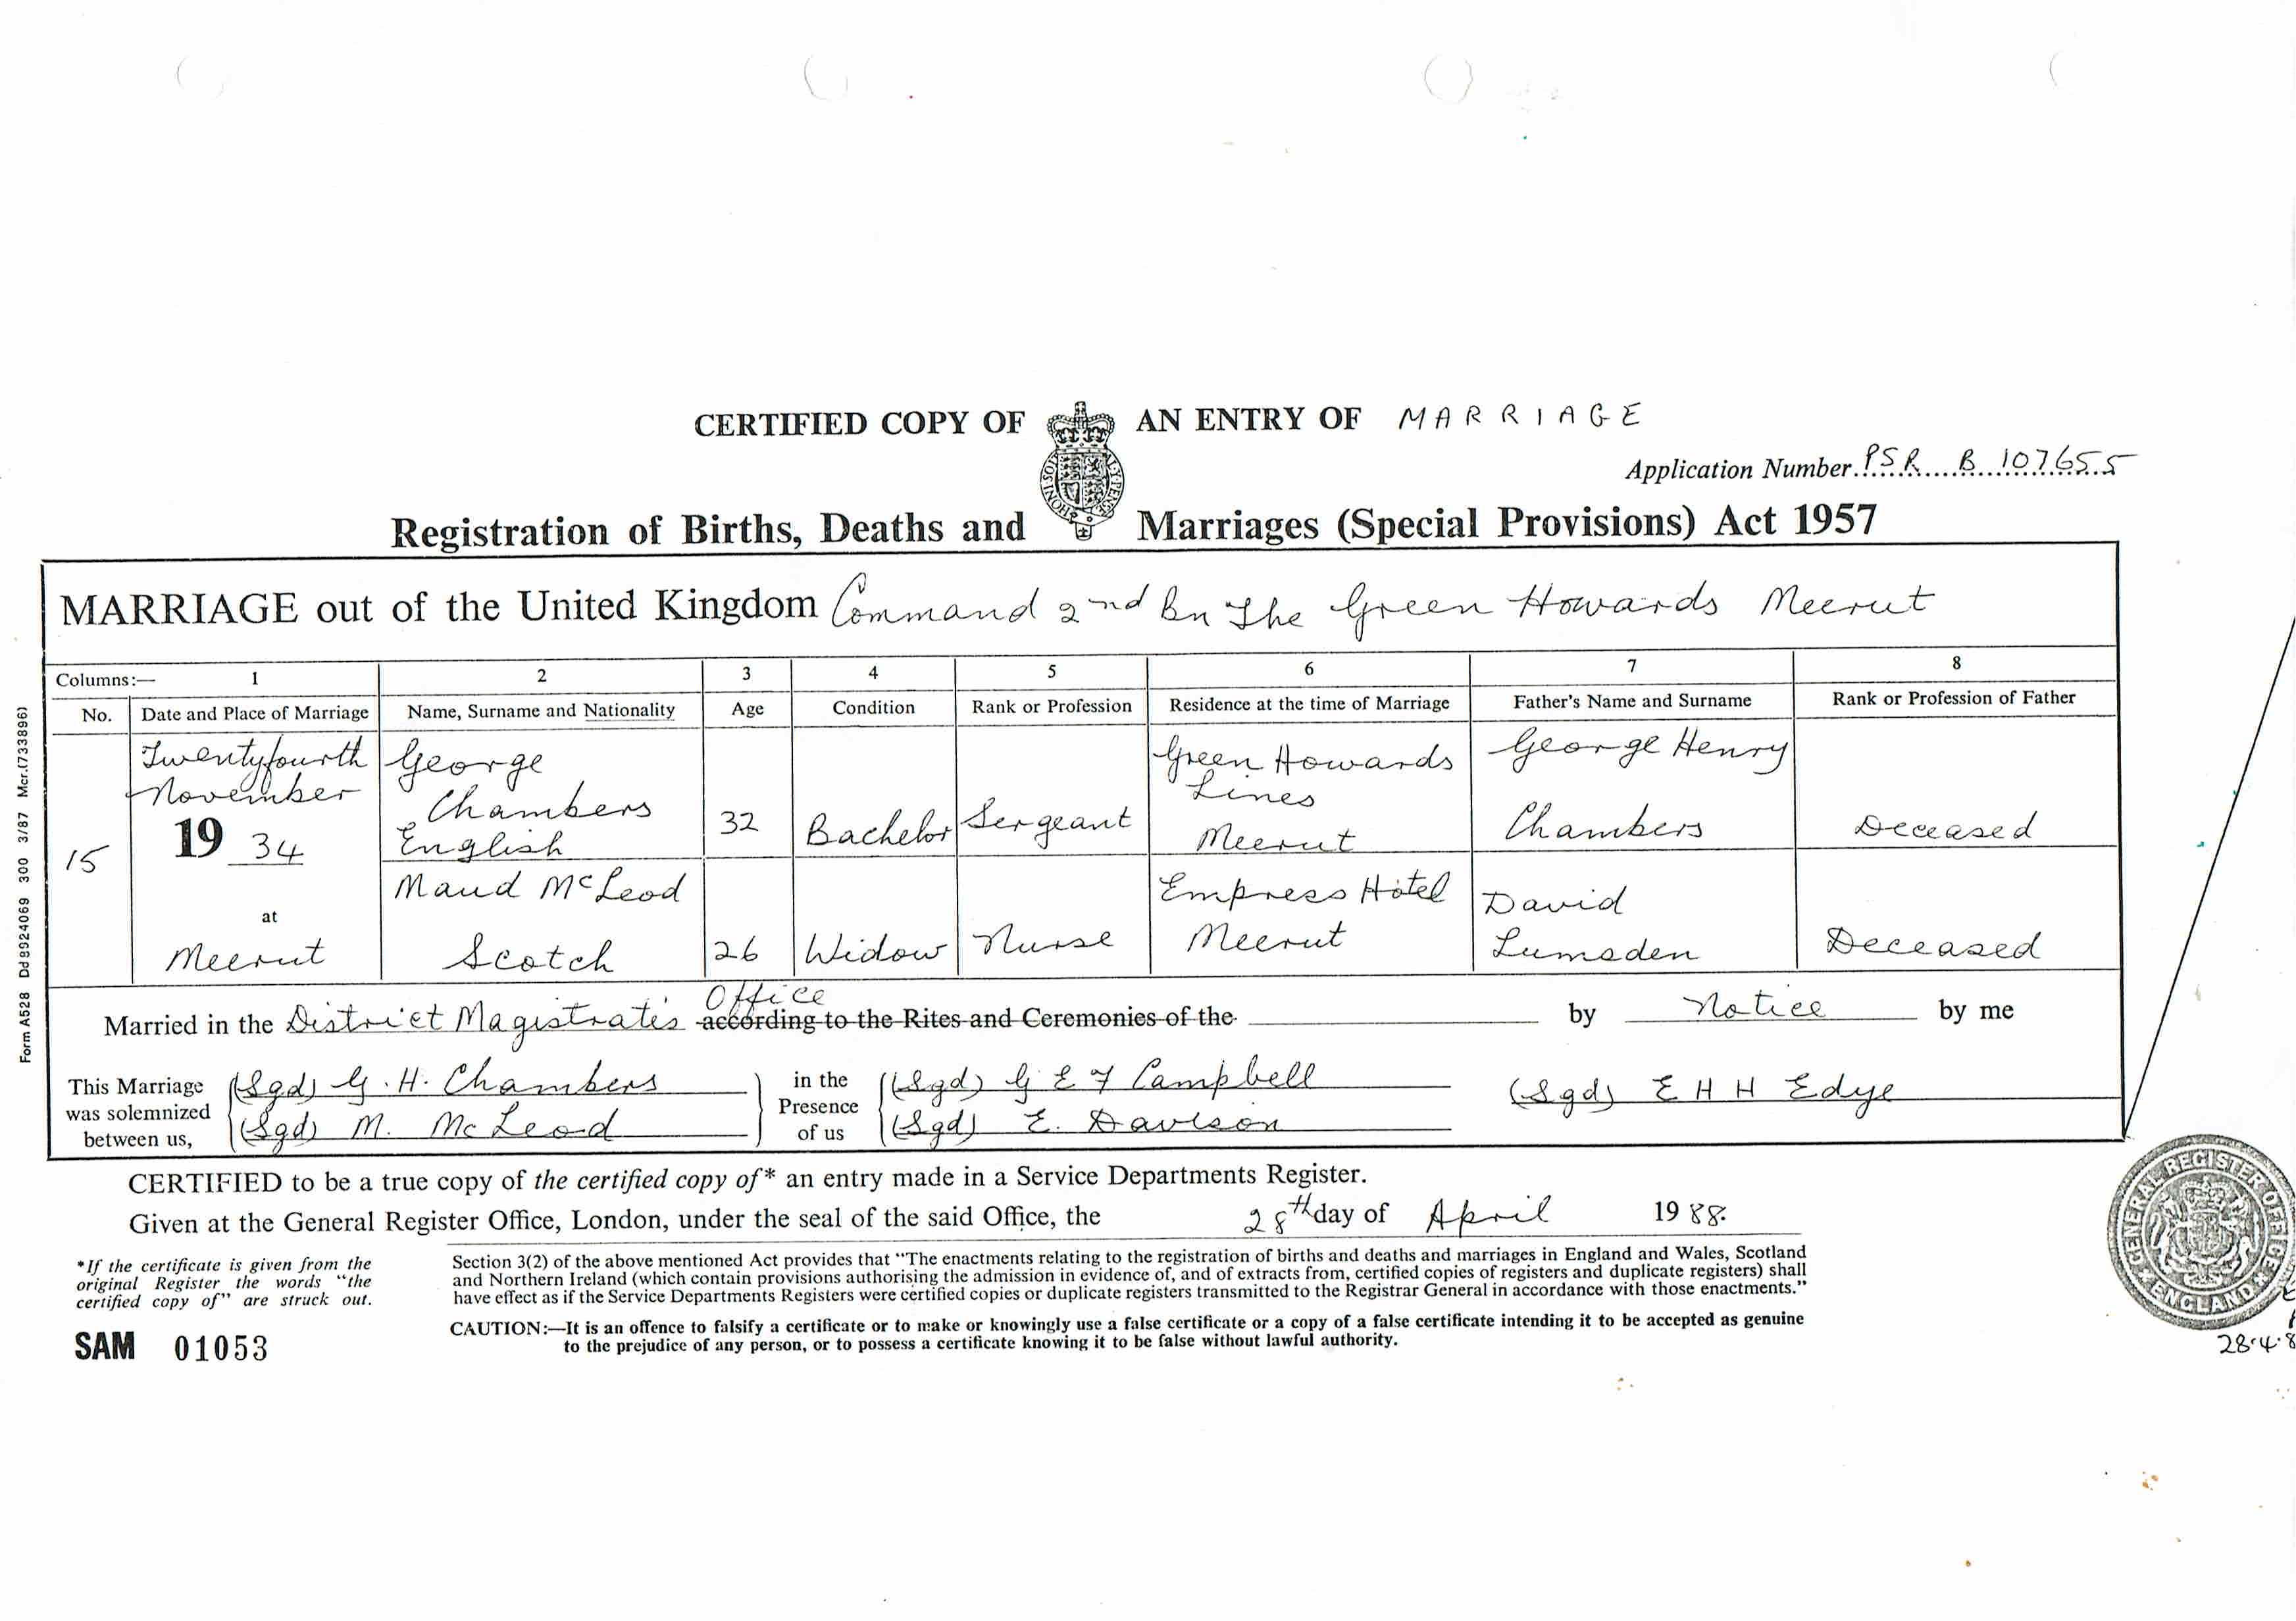 CERTIFIED COPY OF AN ENTRY OF MARRIAGE
Application Number PSR B 107655
Registration of Births, Deaths and Marriages (Special Provisions) Act 1957
HONI SOIT
MARRIAGE out of the United Kingdom Command 2nd Bn The Green Howards Meerut
Columns:— 1 2 3 4 5 6 7 8
No. Date and Place of Marriage Name, Surname and Nationality Age Condition Rank or Profession Residence at the time of Marriage Father's Name and Surname Rank or Profession of Father
15
Twentyfourth
November
19 34
at
Meerut
George
Chambers
English
32
Bachelor
Sergeant
Green Howards
Lines
Meerut
George Henry
Chambers
Deceased
Maud McLeod
Scotch
26
Widow
Nurse
Empress Hotel
Meerut
David
Lumsden
Deceased
Office
Married in the District Magistrate's according to the Rites and Ceremonies of the by Notice by me
This Marriage
was solemnized
between us,
(Sgd) G. H. Chambers
(Sgd) M. McLeod
in the
Presence
of us
(Sgd) G E F Campbell
(Sgd) E. Davison
(Sgd) E H H Edye
CERTIFIED to be a true copy of the certified copy of* an entry made in a Service Departments Register.
Given at the General Register Office, London, under the seal of the said Office, the 28th day of April 1988.
*If the certificate is given from the
original Register the words "the
certified copy of" are struck out.
Section 3(2) of the above mentioned Act provides that "The enactments relating to the registration of births and deaths and marriages in England and Wales, Scotland
and Northern Ireland (which contain provisions authorising the admission in evidence of, and of extracts from, certified copies of registers and duplicate registers) shall
have effect as if the Service Departments Registers were certified copies or duplicate registers transmitted to the Registrar General in accordance with those enactments."
CAUTION:—It is an offence to falsify a certificate or to make or knowingly use a false certificate or a copy of a false certificate intending it to be accepted as genuine
to the prejudice of any person, or to possess a certificate knowing it to be false without lawful authority.
SAM 01053
Form A528 Dd 8924069 300 3/87 Mcr.(733896)
GENERAL REGISTER OFFICE
ENGLAND
28.4.8